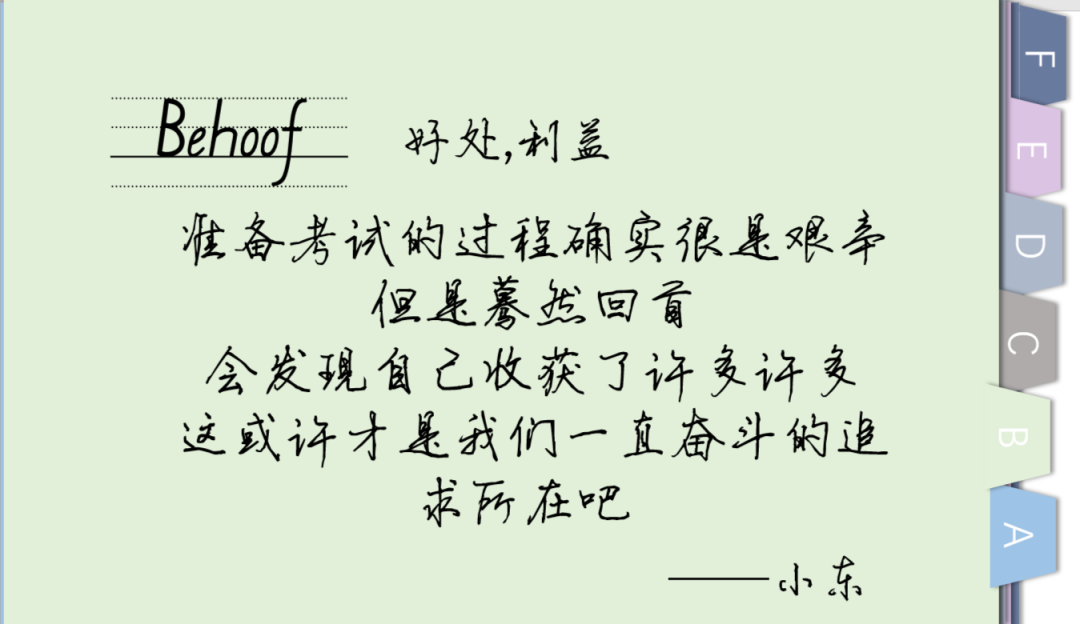 Behoof 好处,利益
准备考试的过程确实很是艰辛
但是蓦然回首
会发现自己收获了许多许多
这或许才是我们一直奋斗的追
求所在吧
——小东
F
E
D
C
B
A